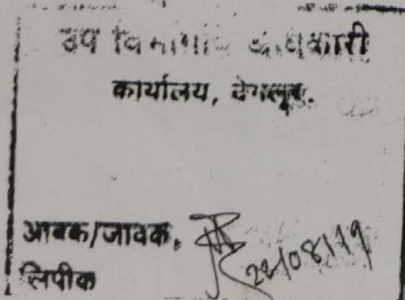 उप विभागीय अधिकारी
कार्यालय, देगलूर.
आवक/जावक,
लिपीक